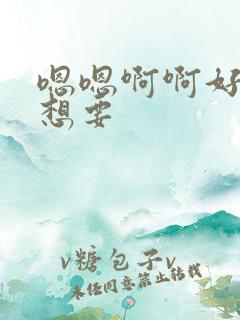 嗯嗯啊啊好
想要
v糖包子v
未经同意禁止转载